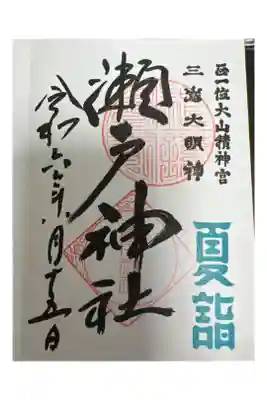 正一位大山積神宮
三島大明神
夏詣
瀬戸神社
令和六年八月十五日